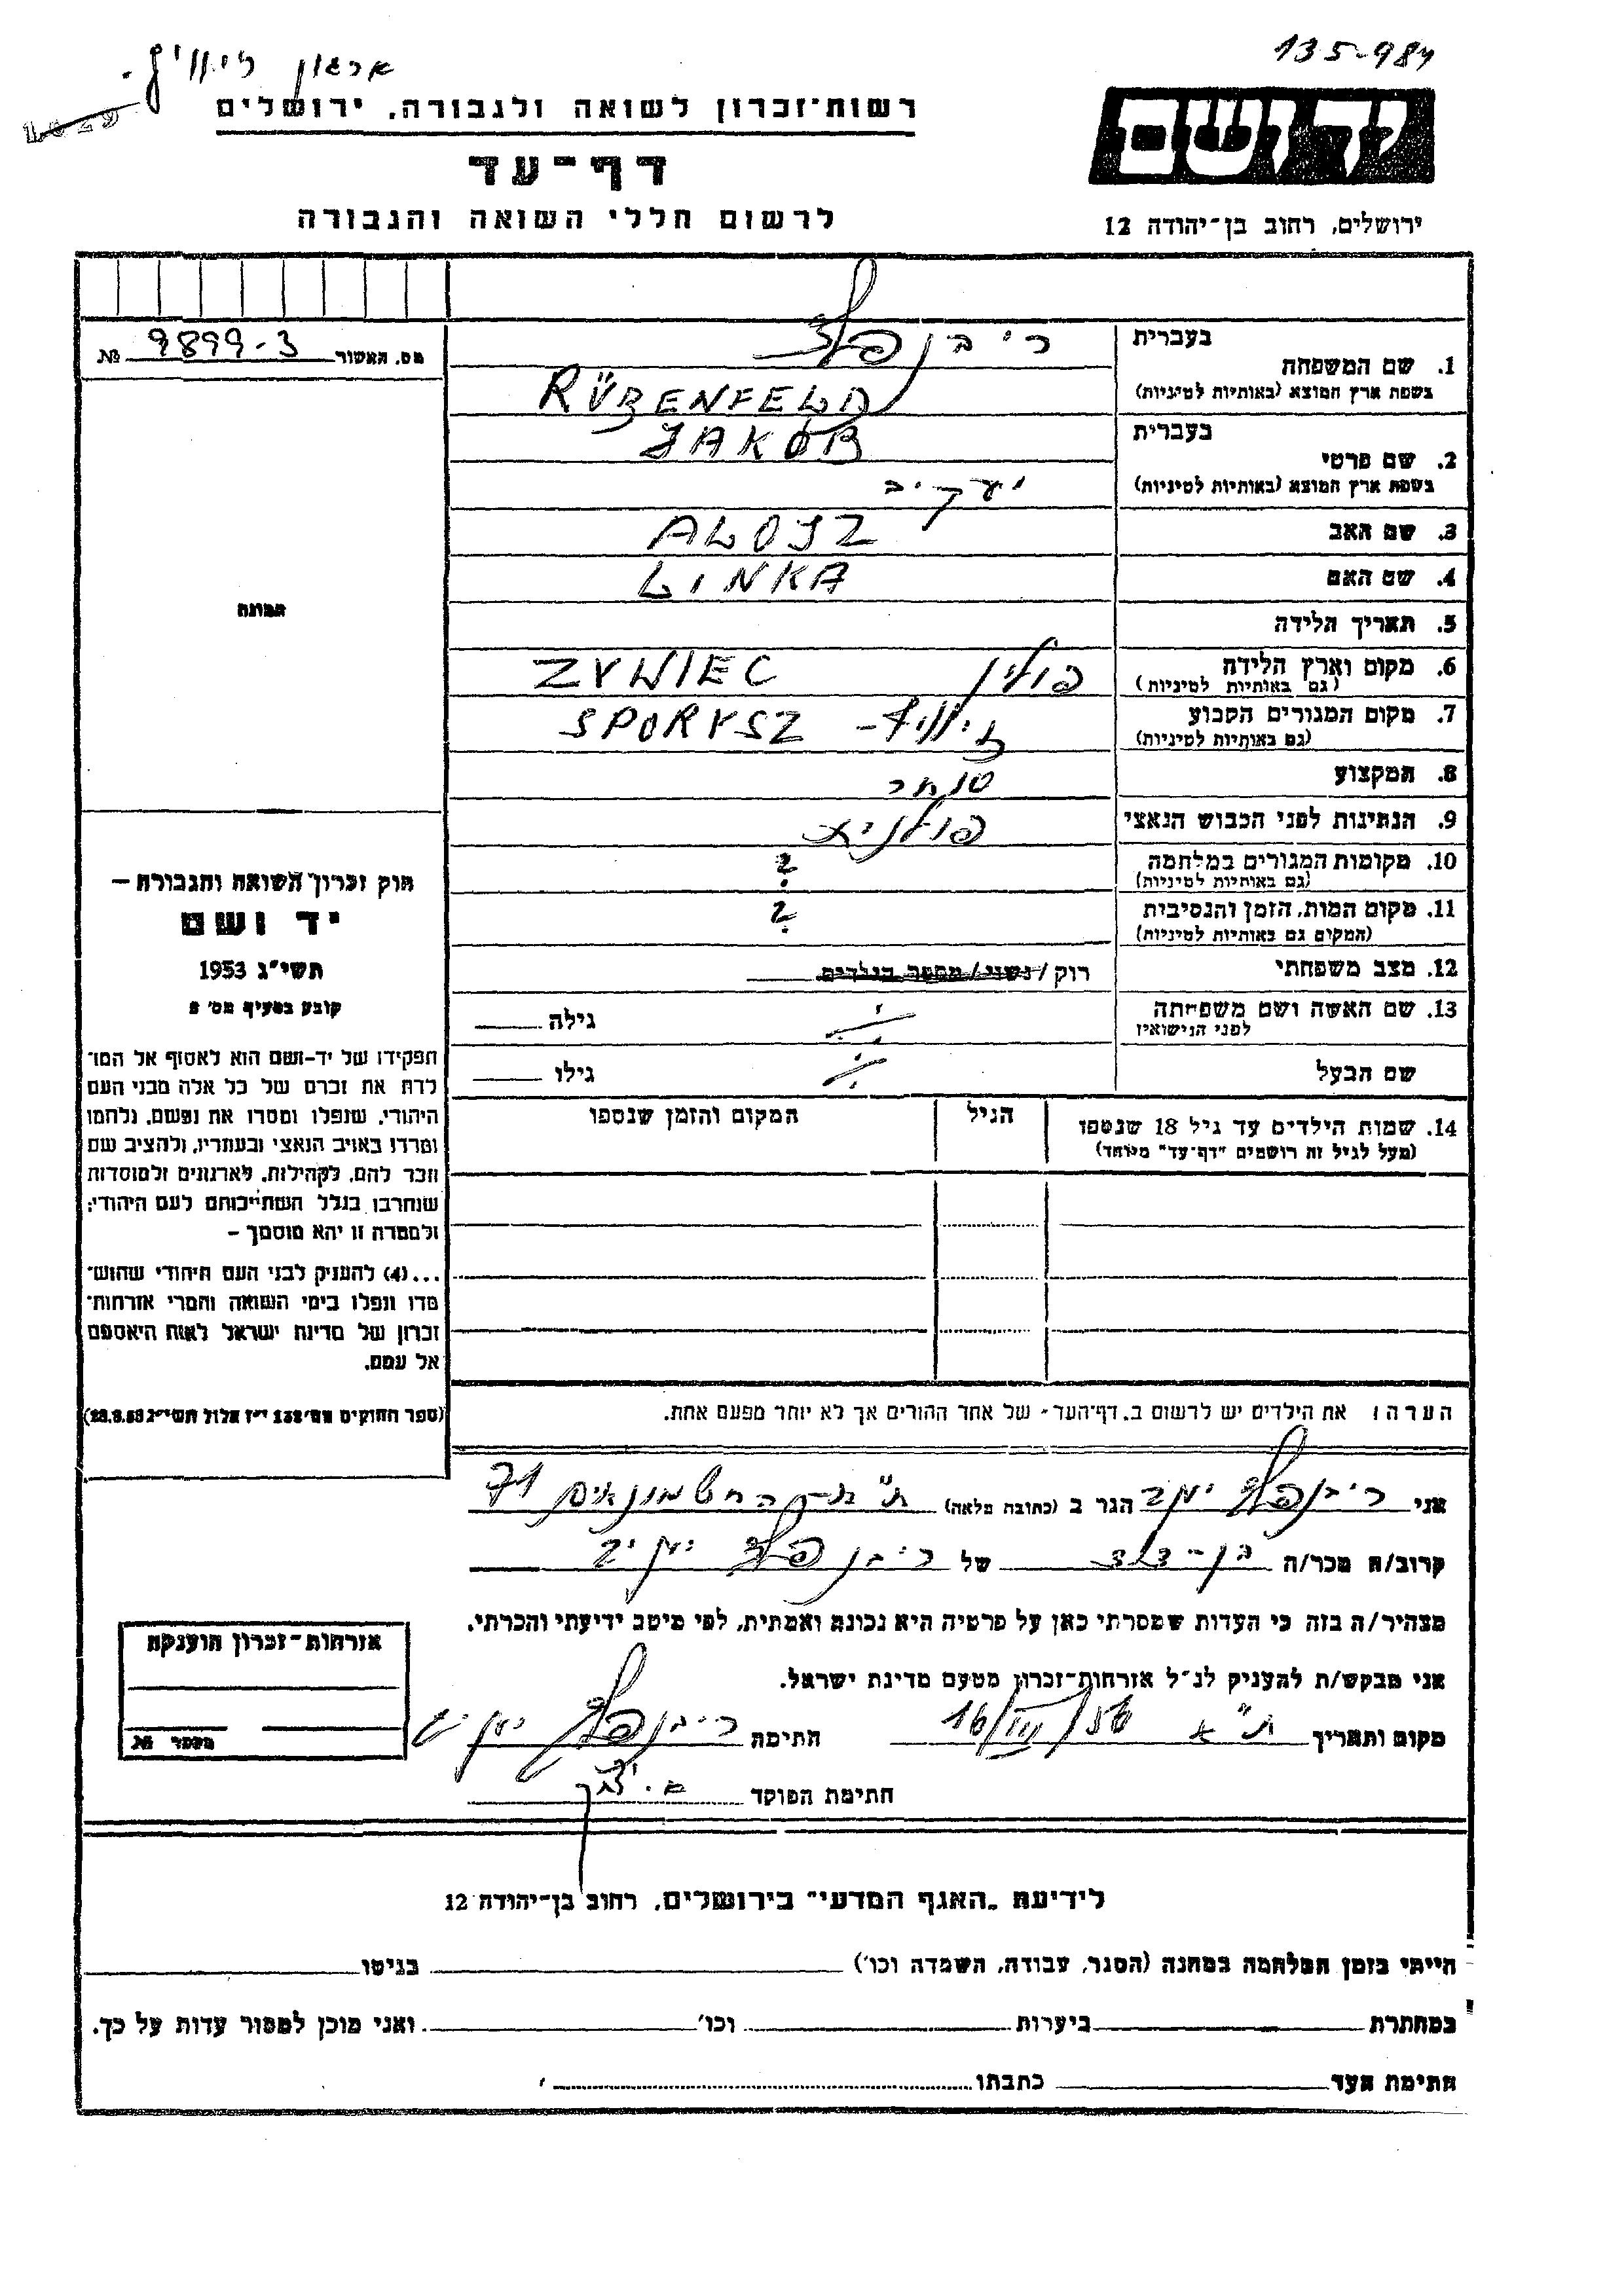 135-984
ארגון זיוויץ.
1029
יד ושם
רשות-זכרון לשואה ולגבורה, ירושלים
דף-עד
לרשום חללי השואה והגבורה
ירושלים, רחוב בן-יהודה 12
מס. האשור 9899-3 №
בעברית
1. שם המשפחה
ריבנפלד
בשפת ארץ המוצא (באותיות לטיניות)
RÜBENFELD
בעברית
JAKOB
2. שם פרטי
בשפת ארץ המוצא (באותיות לטיניות)
יעקיב
3. שם האב ALOJZ
4. שם האם LINKA
תמונה
5. תאריך הלידה
6. מקום וארץ הלידה פולין ZYWIEC
(גם באותיות לטיניות)
7. מקום המגורים הקבוע זיוויץ - SPORYSZ
(גם באותיות לטיניות)
8. המקצוע סוחר
9. הנתינות לפני הכבוש הנאצי פולנית
10. מקומות המגורים במלחמה ?
(גם באותיות לטיניות)
11. מקום המות, הזמן והנסיבות ?
(המקום גם באותיות לטיניות)
12. מצב משפחתי רוק/נשוי/מספר הילדים
13. שם האשה ושם משפחתה גילה
לפני הנישואין
שם הבעל גילו
14. שמות הילדים עד גיל 18 שנספו הגיל המקום והזמן שנספו
(מעל לגיל זה רושמים "דף-עד" מיוחד)
חוק זכרון השואה והגבורה –
יד ושם
תשי"ג 1953
קובע בסעיף מס' 2
תפקידו של יד-ושם הוא לאסוף אל המו־
לדת את זכרם של כל אלה מבני העם
היהודי, שנפלו ומסרו את נפשם, נלחמו
ומרדו באויב הנאצי ובעוזריו, ולהציב שם
וזכר להם, לקהילות, לארגונים ולמוסדות
שנחרבו בגלל השתייכותם לעם היהודי;
ולמטרה זו יהא מוסמך –
...(4) להעניק לבני העם היהודי שהוש־
מדו ונפלו בימי השואה והמרי אזרחות־
זכרון של מדינת ישראל לאות היאספם
אל עמם.
(ספר החוקים מס' 132 י"ז אלול תשי"ג 28.8.53)
הערה: את הילדים יש לרשום ב"דף-העד" של אחד ההורים אך לא יותר מפעם אחת.
אני ריבנפלד יעקב הגר ב (כתובת מלאה) ת"א החשמונאים 71
קרוב/ה מכר/ה בן-דוד של ריבנפלד יעקיב
מצהיר/ה בזה כי העדות שמסרתי כאן על פרטיה היא נכונה ואמתית, לפי מיטב ידיעתי והכרתי.
אני מבקש/ת להעניק לנ"ל אזרחות-זכרון מטעם מדינת ישראל.
מקום ותאריך ת"א 16/III/56 חתימה ריבנפלד
חתימת הפוקד
אזרחות-זכרון הוענקה
מספר №
לידיעת "האגף המדעי" בירושלים, רחוב בן-יהודה 12
הייתי בזמן המלחמה במחנה (הסגר, עבודה, השמדה וכו') בגיטו
במחתרת ביערות וכו' ואני מוכן למסור עדות על כך.
חתימת העד כתבתו